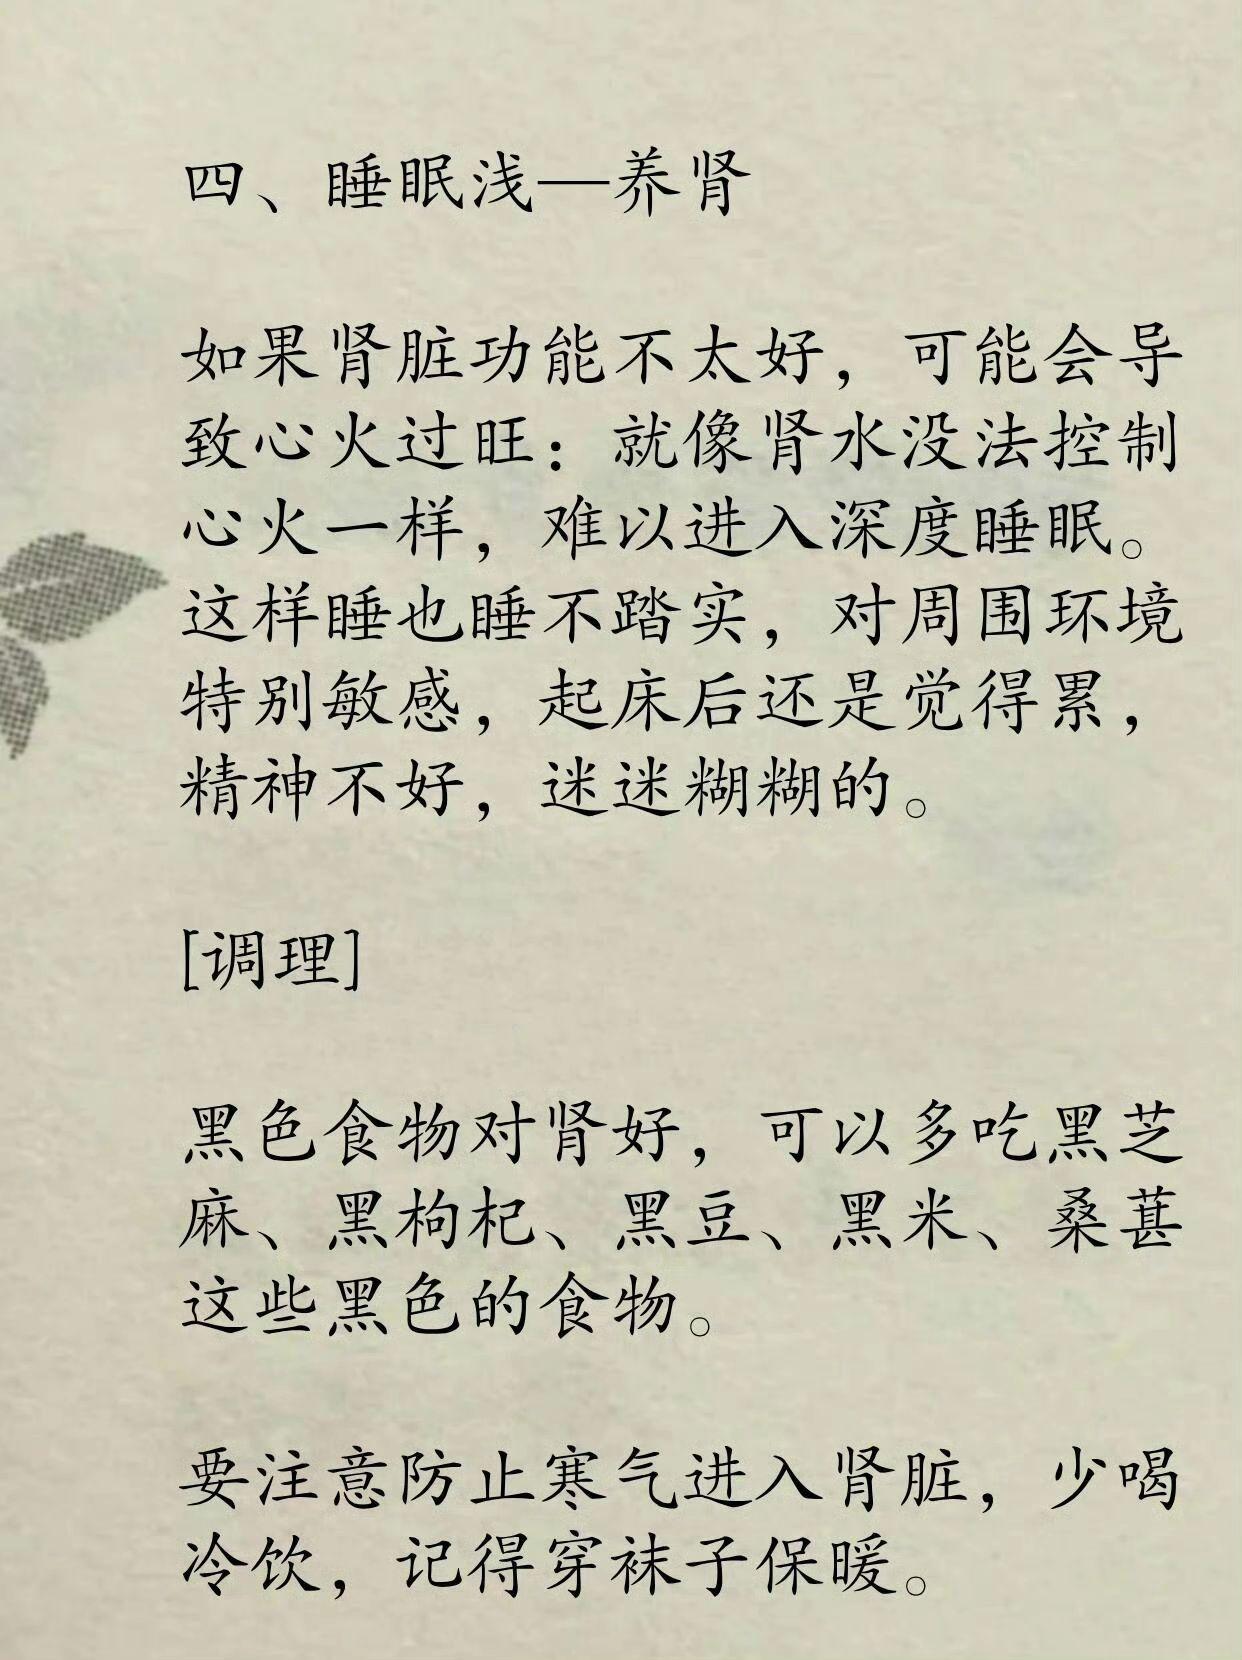 四、睡眠浅—养肾
如果肾脏功能不太好，可能会导
致心火过旺：就像肾水没法控制
心火一样，难以进入深度睡眠。
这样睡也睡不踏实，对周围环境
特别敏感，起床后还是觉得累，
精神不好，迷迷糊糊的。
[调理]
黑色食物对肾好，可以多吃黑芝
麻、黑枸杞、黑豆、黑米、桑葚
这些黑色的食物。
要注意防止寒气进入肾脏，少喝
冷饮，记得穿袜子保暖。